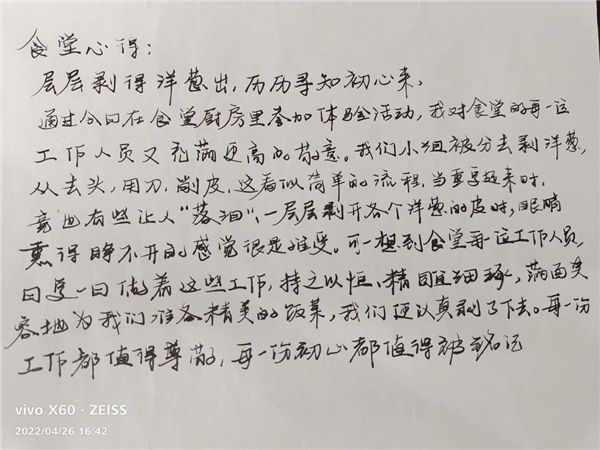 食堂心得：
层层剥得洋葱出，历历寻知初心来。
通过今日在食堂厨房里参加体验活动，我对食堂的每一位
工作人员又充满更高的敬意。我们小组被分去剥洋葱，
从去头，用刀，削皮，这看似简单的流程，当重复起来时，
竟也有些让人“落泪”、一层层剥开各个洋葱的皮时，眼睛
熏得睁不开的感觉很是难受。可一想到食堂每一位工作人员，
日复一日做着这些工作，持之以恒、精雕细琢，满面笑
容地为我们准备精美的饭菜，我们便认真剥了下去。每一份
工作都值得尊敬，每一份初心都值得被铭记
vivo X60 · ZEISS
2022/04/26 16:42